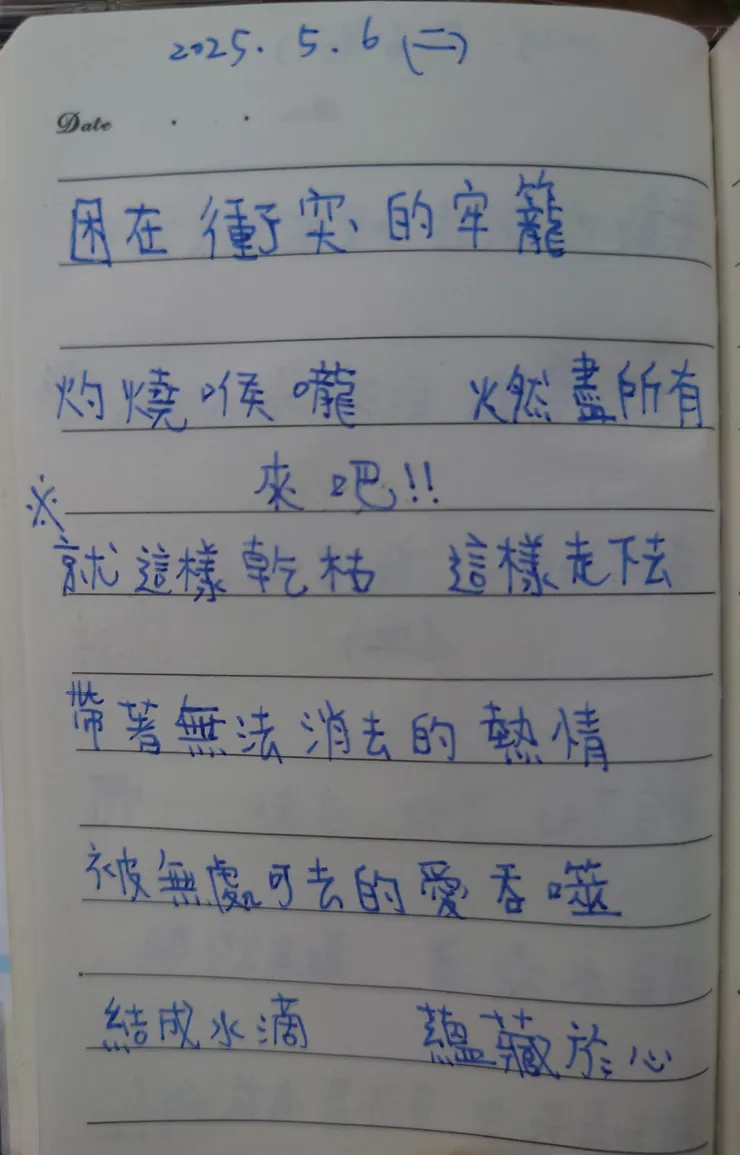 2025. 5. 6 (二)
Date . .
困在衝突的牢籠
灼燒喉嚨 燃盡所有
來吧!!
※
就這樣乾枯 這樣走下去
帶著無法消去的熱情
被無處可去的愛吞噬
結成水滴 蘊藏於心